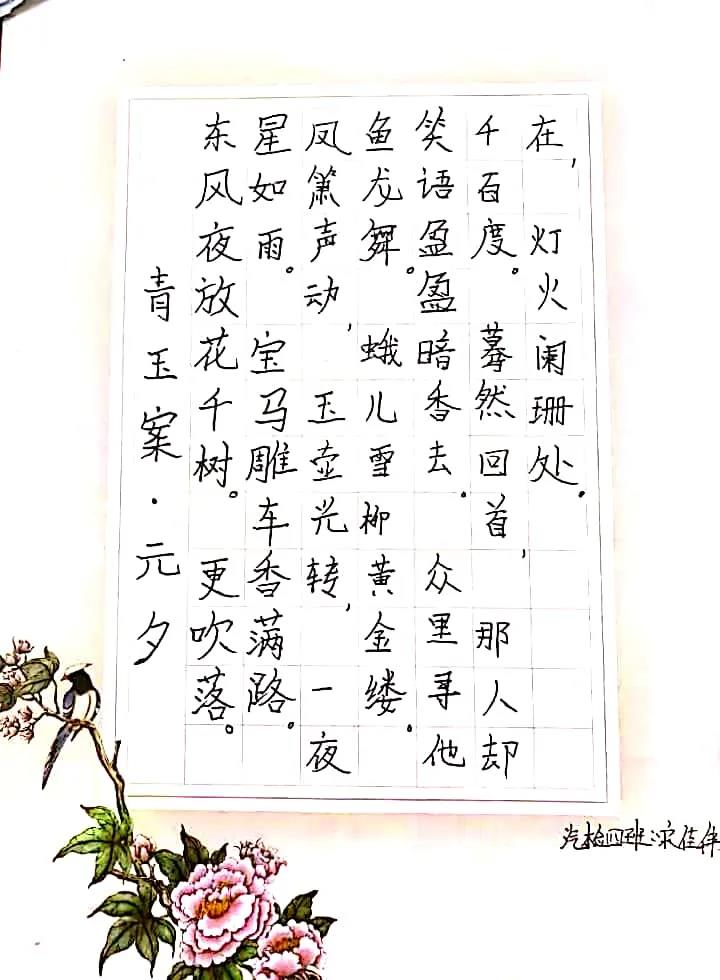 青玉案·元夕
东风夜放花千树。更吹落。
星如雨。宝马雕车香满路。
凤箫声动,玉壶光转,一夜
鱼龙舞。蛾儿雪柳黄金缕。
笑语盈盈暗香去。众里寻他
千百度。蓦然回首,那人却
在,灯火阑珊处.
汽检四班:宋佳